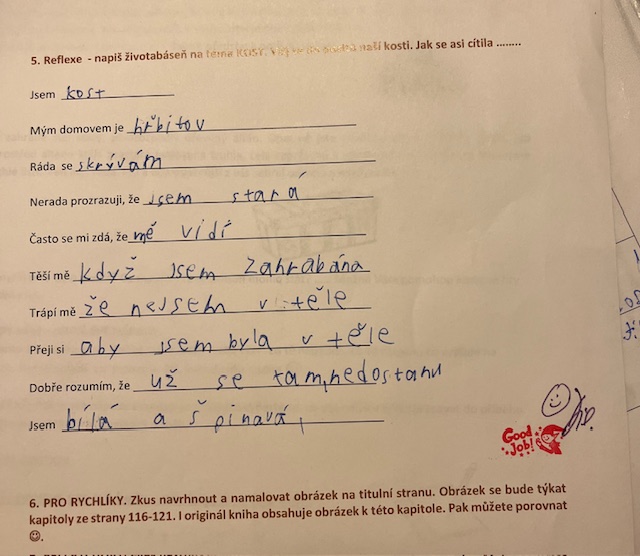 5. Reflexe - napiš životabáseň na téma KOST. naší kosti. Jak se asi cítila ........
Jsem kost
Mým domovem je hřbitov
Ráda se skrývám
Nerada prozrazuji, že jsem stará
Často se mi zdá, že mě vidí
Těší mě když jsem zahrabána
Trápí mě že nejsem v těle
Přeji si aby jsem byla v těle
Dobře rozumím, že už se tam nedostanu
Jsem bílá a špinavá
Good Job!
6. PRO RYCHLÍKY. Zkus navrhnout a namalovat obrázek na titulní stranu. Obrázek se bude týkat
kapitoly ze strany 116-121. I originál kniha obsahuje obrázek k této kapitole. Pak můžete porovnat
☺.